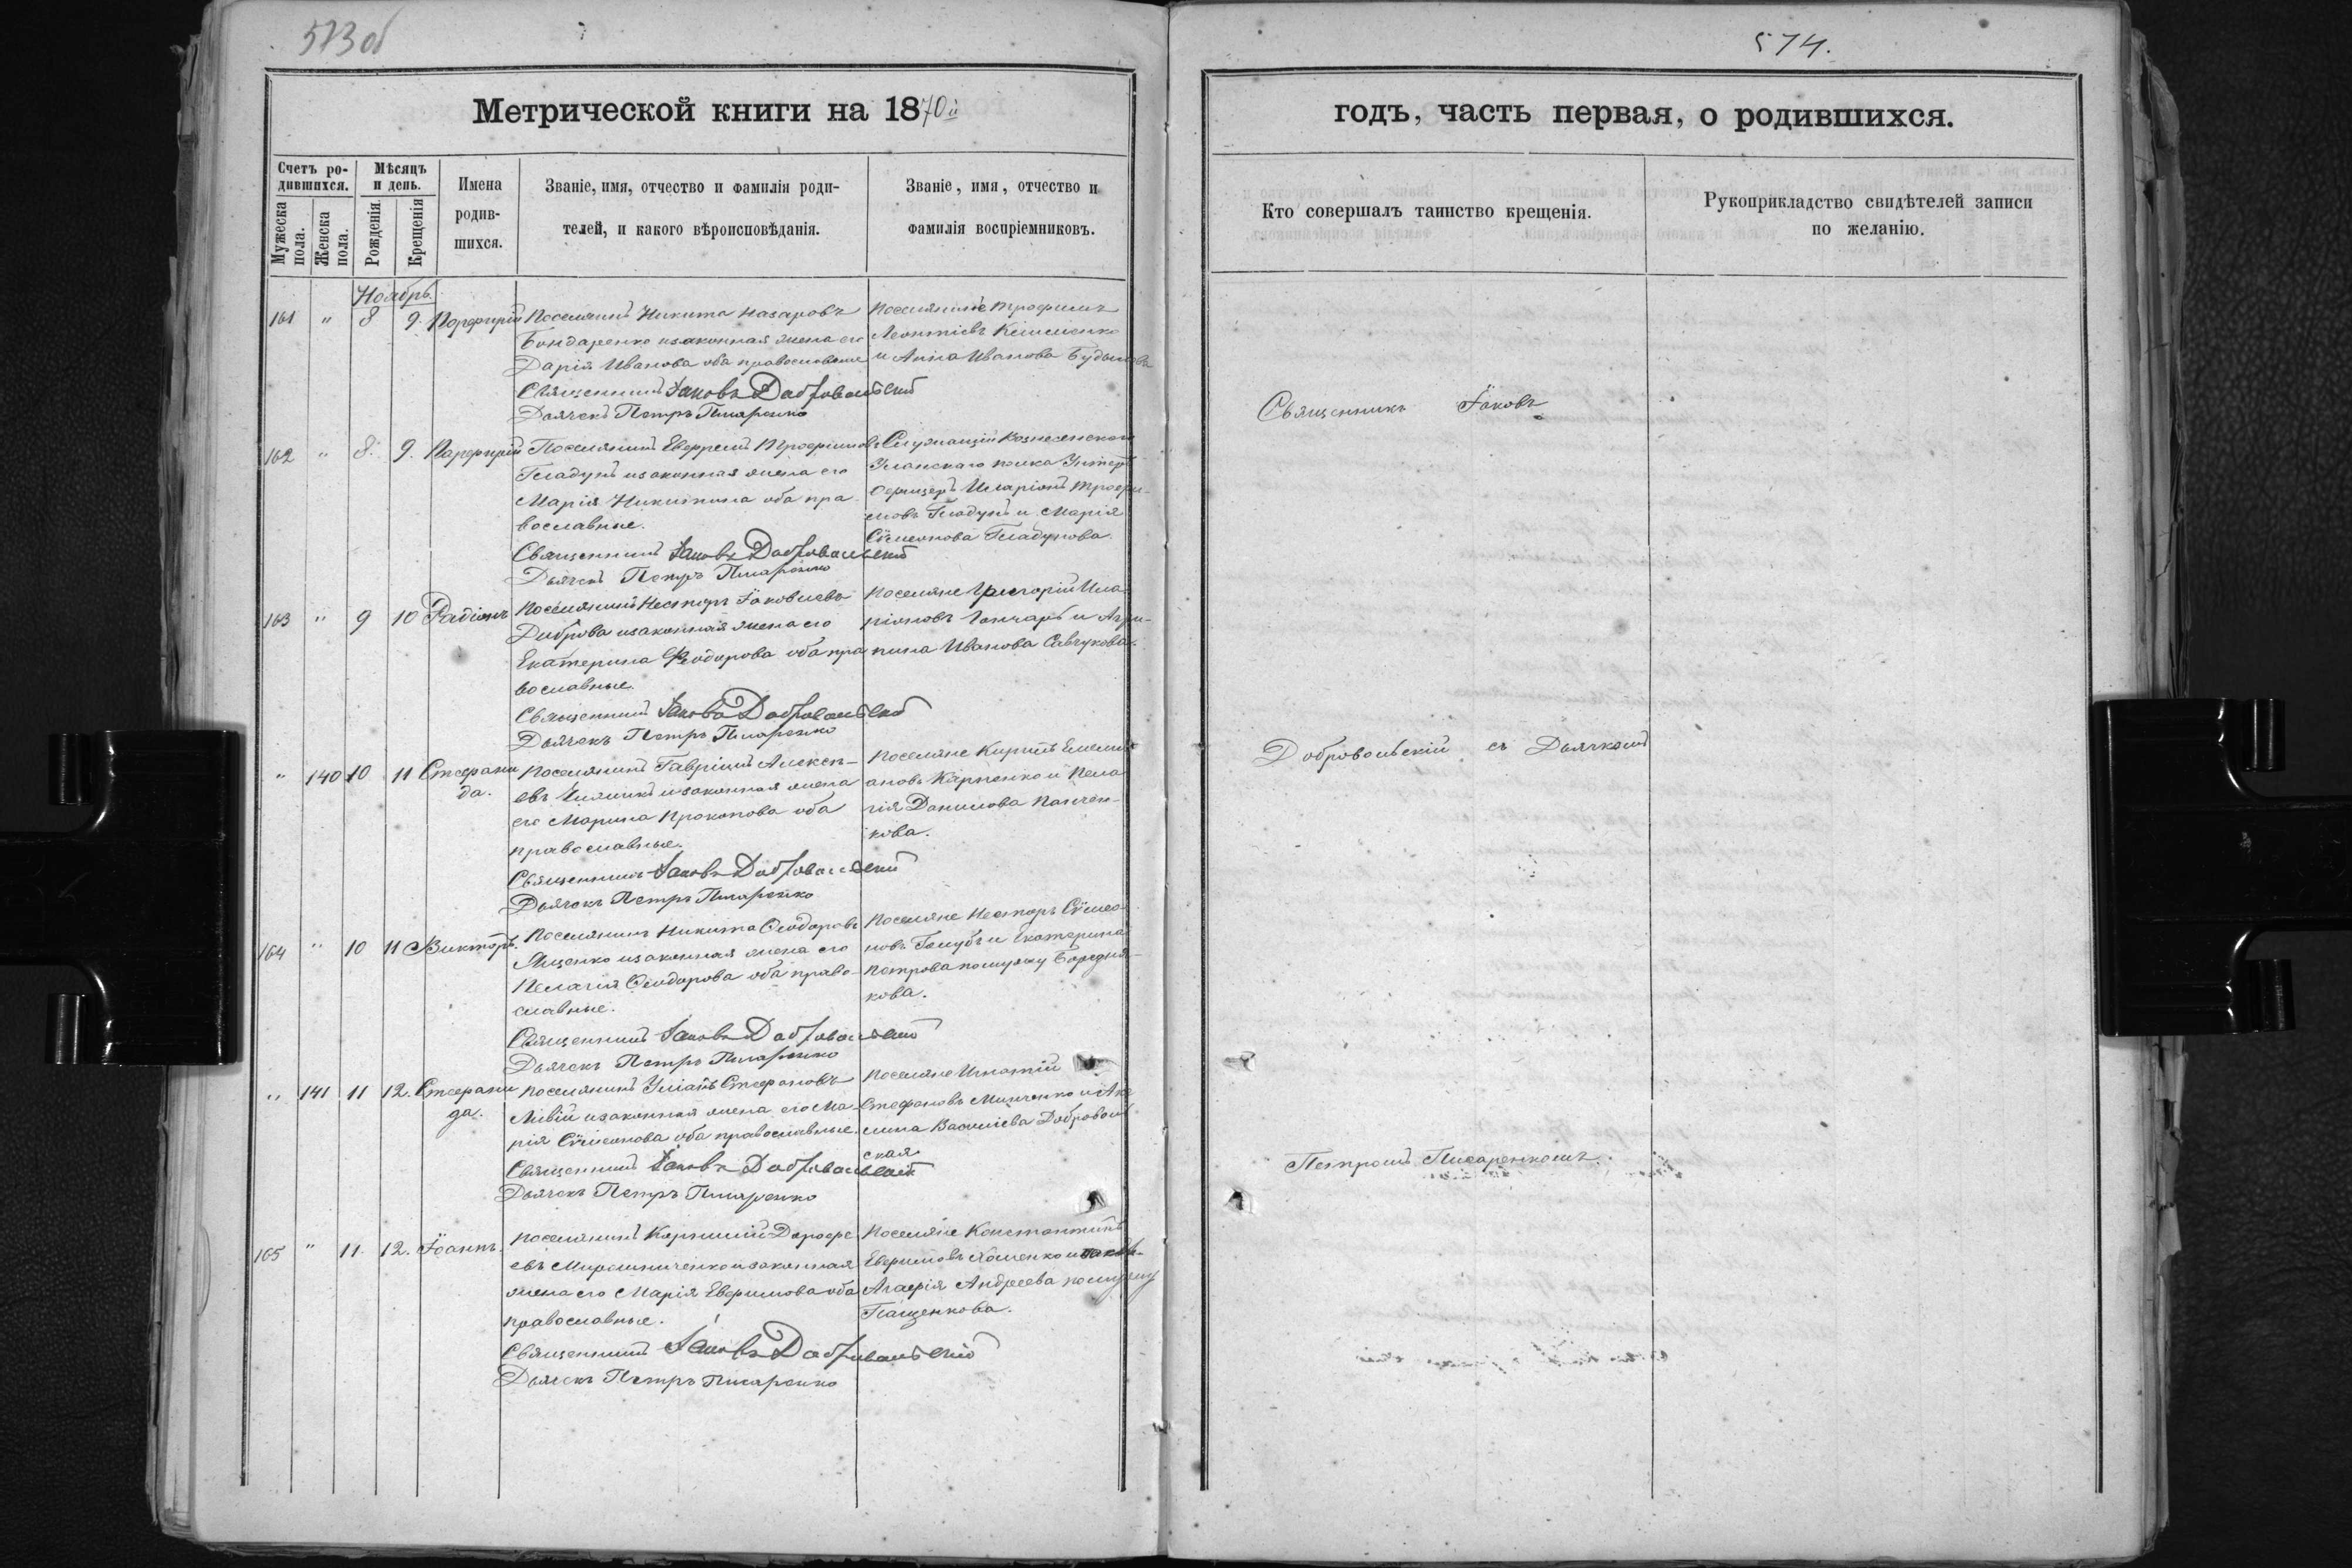 573 об
574.
Метрической книги на 1870й
годъ, часть первая, о родившихся.
Счетъ ро-
дившихся.
Мѣсяцъ
и день.
Мужеска
пола.
Женска
пола.
Рожденія.
Крещенія
Имена
родив-
шихся.
Званіе, имя, отчество и фамилія роди-
телей, и какого вѣроисповѣданія.
Званіе, имя, отчество и
фамилія воспріемниковъ.
Кто совершалъ таинство крещенія.
Рукоприкладство свидѣтелей записи
по желанію.
Ноябрь.
161 " 8 9. Порфирій
Поселянинъ Никита Назаровъ
Бондаренко и законная жена его
Дарія Иванова оба православные
Священникъ Іаковъ Добровольскій
Дьячекъ Петръ Писаренко
Поселяне Трофимъ
Леонтіевъ
и Анна Иванова
162 " 8. 9. Порфирій
Поселянинъ Евфремъ Трофимовъ
Гладунъ и законная жена его
Марія Никитина оба пра-
вославные.
Священникъ Іаковъ Добровольскій
Дьячекъ Петръ Писаренко
Служащій Вознесенскаго
Уланскаго полка Унтеръ
Офицеръ Иларіонъ Трофи-
мовъ Гладунъ и Марія
Сѵмеонова Гладунова.
163 " 9 10 Радіонъ
Поселянинъ Несторъ Іаковлевъ
Диброва и законная жена его
Екатерина Ѳеодорова оба пра
вославные.
Священникъ Іаковъ Добровольскій
Дьячекъ Петръ Писаренко
Поселяне Григорій Ила-
ріоновъ Гончаръ и Агри-
пина Иванова Савчукова.
" 140 10 11 Стефани
да.
Поселянинъ Гавріилъ Алексѣ-
евъ и законная жена
его Марина Прокопова оба
православные.
Священникъ Іаковъ Добровольскій
Дьячекъ Петръ Писаренко
Поселяне Кирилъ Емели-
ановъ Карпенко и Пела
гія Данилова Панчен-
кова.
164 " 10 11 Викторъ.
Поселянинъ Никита Ѳеодоровъ
Яценко и законная жена его
Пелагія Ѳеодорова оба право-
славные.
Священникъ Іаковъ Добровольскій
Дьячекъ Петръ Писаренко
Поселяне Несторъ Сѵмео-
новъ Голубъ и Екатерина
Петрова по мужу Бородня-
кова.
" 141 11 12. Стефани
да.
Поселянинъ Уліанъ Стефановъ
Ливій и законная жена его Ма-
рія Сѵмеонова оба православные.
Священникъ Іаковъ Добровольскій
Дьячекъ Петръ Писаренко
Поселяне Игнатій
Стефановъ Минченко и Аки
лина Василіева Доброволь
ская
165 " 11. 12. Іоаннъ.
Поселянинъ Корнилій Дорофе
евъ Мирошниченко и законная
жена его Марія Евфимова оба
православные.
Священникъ Іаковъ Добровольскій
Дьячекъ Петръ Писаренко
Поселяне Константинъ
Евфимовъ Хоменко и
Агафія Андреева по мужу
Пащенкова.
Священникъ Іаковъ
Добровольскій съ Дьячкомъ
Петромъ Писаренкомъ.